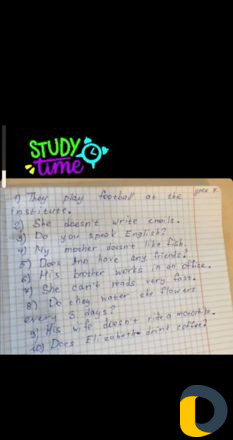 STUDY
time
1) They play football at the
institute.
2) She doesn't write emails.
3) Do you speak English?
4) My mother doesn't like fish.
5) Does Ann have any friends?
6) His brother works in an office.
7) She can't reads very fast.
8) Do they water the flowers
every 3 days?
9) His wife doesn't ride a motorbike.
10) Does Elizabeth drink coffee?